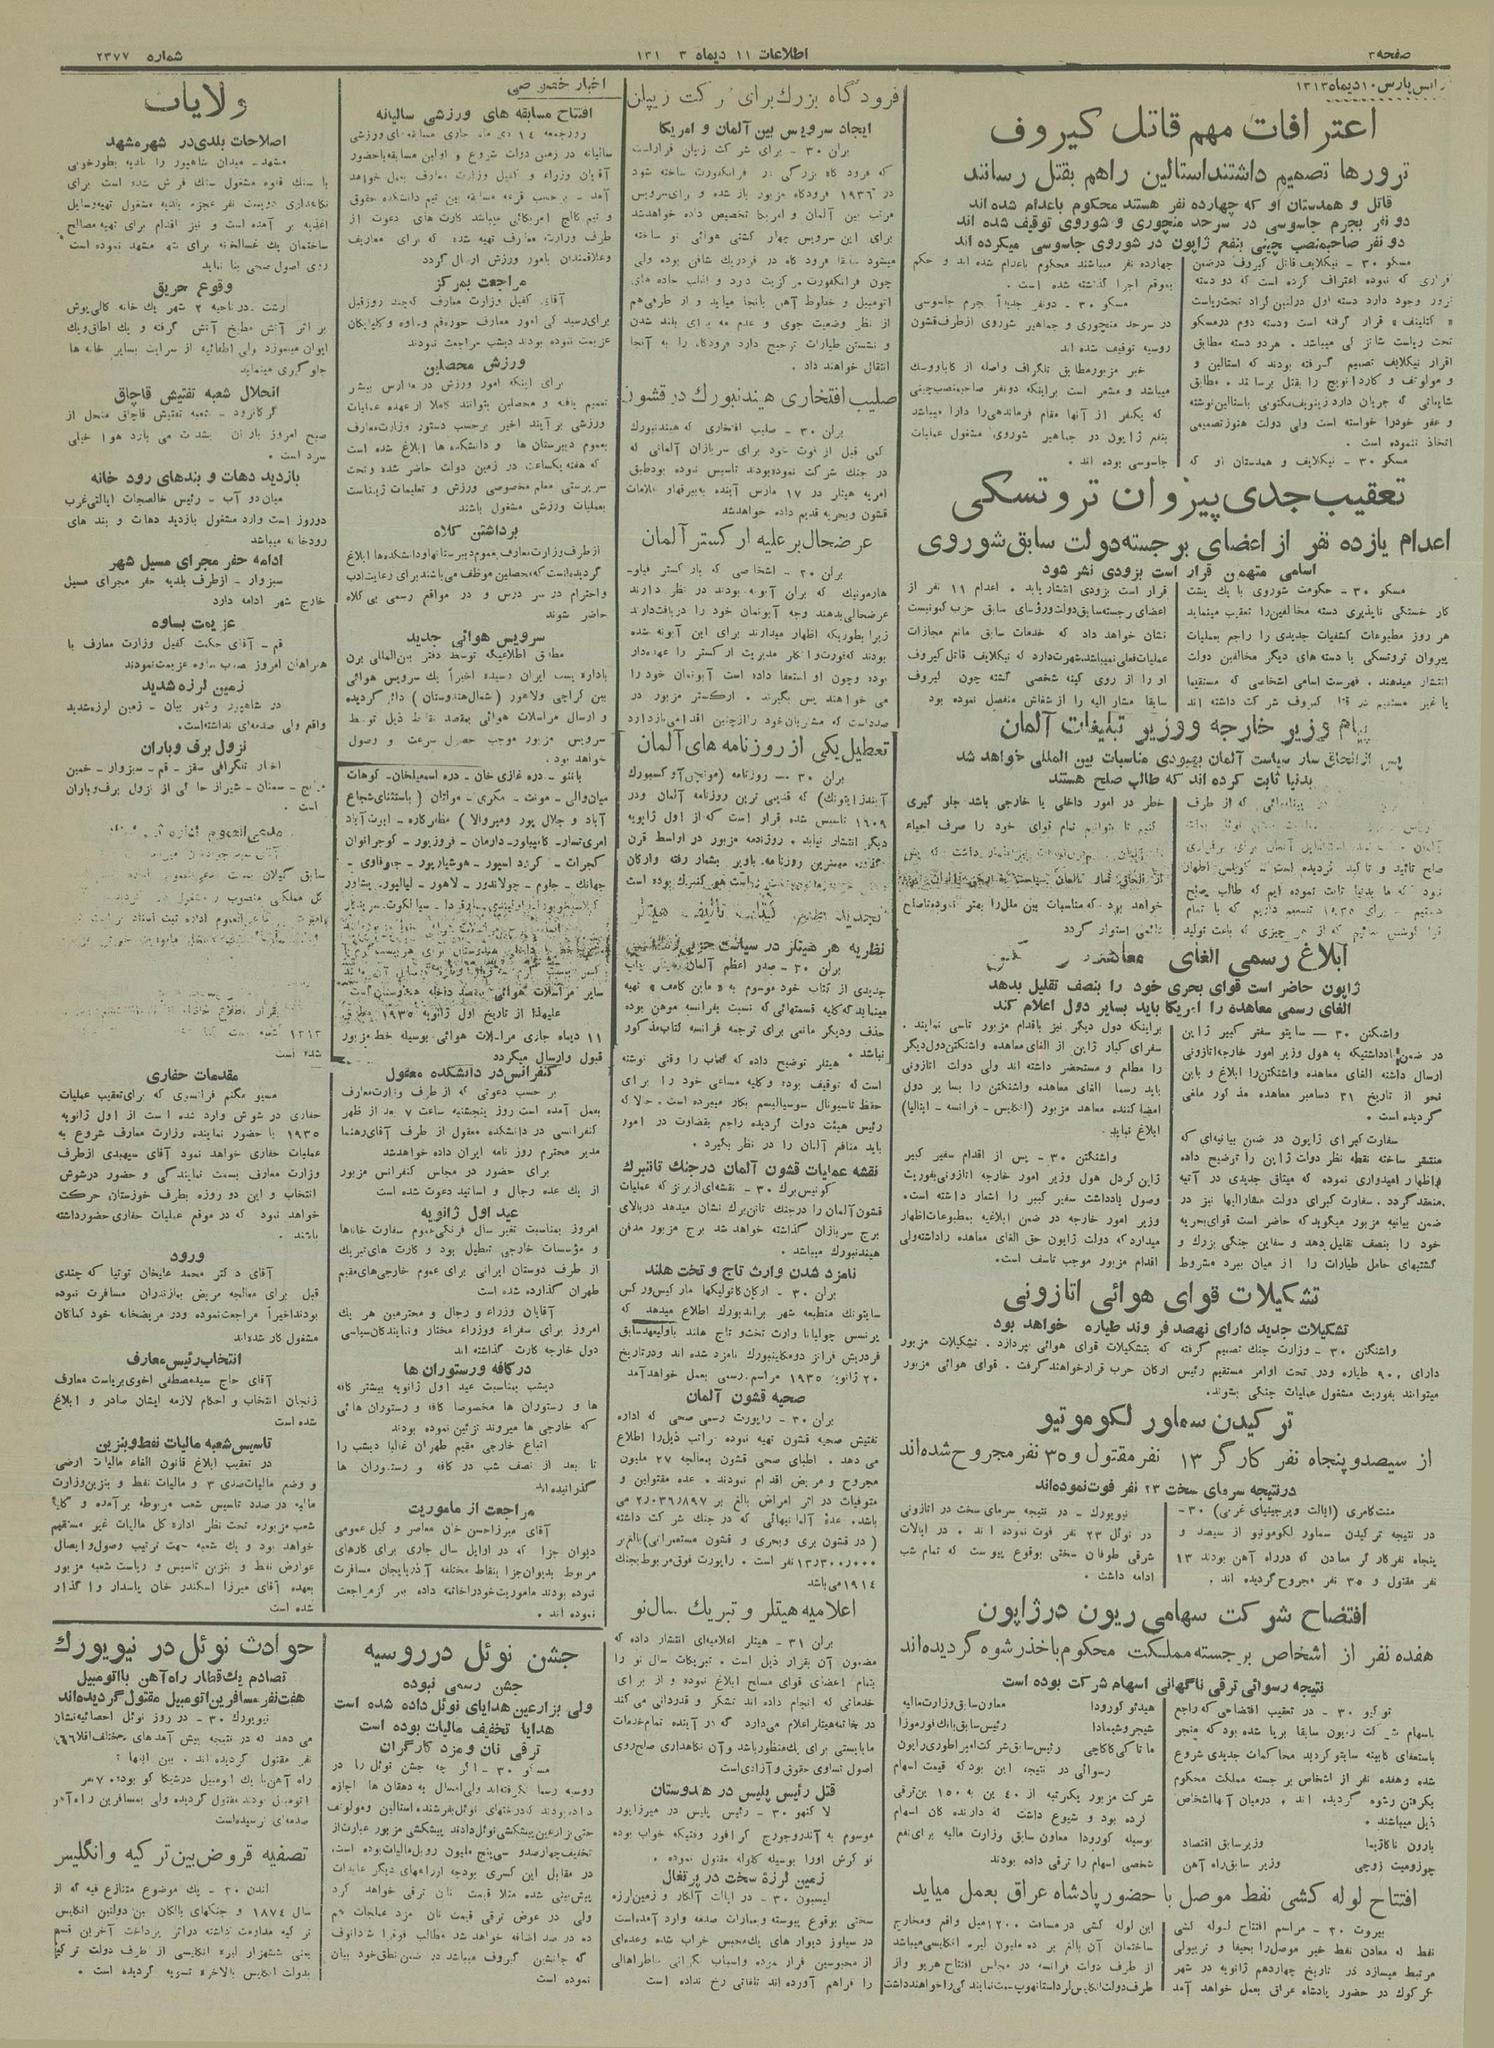 صفحه ۳
اطلاعات ۱۱ دیماه ۱۳۱۳
شماره ۲۳۷۷
آژانس پارس ۱۰ دیماه ۱۳۱۳
اعترافات مهم قاتل کیروف
ترورها تصمیم داشتند استالین راهم بقتل رسانند
قاتل و همدستان او که چهارده نفر هستند محکوم باعدام شده اند
دو نفر بجرم جاسوسی در سرحد منچوری و شوروی توقیف شده اند
دو نفر صاحبمنصب چینی بنفع ژاپون در شوروی جاسوسی میکرده اند
مسکو ۳۰ - نیکلایف قاتل کیروف درضمن
اقراری که نموده اعتراف کرده است که دو دسته
ترور وجود دارد دسته اول درلنین گراد تحت ریاست
« کتلینف » قرار گرفته است ودسته دوم درمسکو
اقرار نیکلایف تصمیم گرفته بودند که استالین و
و مولوتف و کاردانویچ را بقتل برسانند . مطابق
شایعاتی که جریان دارد زینویف مکتوبی باستالین نوشته
و عفو خودرا خواسته است ولی دولت هنوز تصمیمی
اتخاذ ننموده است .
مسکو ۳۰ - نیکلایف و همدستان او که
چهارده نفر میباشند محکوم باعدام شده اند و حکم
بموقع اجرا گذاشته شده است .
مسکو ۳۰ - دونفر جدیداً بجرم جاسوسی
در سرحد منچوری و جماهیر شوروی ازطرف قشون
روسیه توقیف شده اند
خبر مزبور مطابق تلگراف واصله از کاباروسک
میباشد و مشعر است براینکه دونفر صاحبمنصب چینی
که یکنفر از آنها مقام فرماندهی را دارا میباشد
بنفع ژاپون در جماهیر شوروی مشغول عملیات
جاسوسی بوده اند .
تعقیب جدی پیروان تروتسکی
اعدام یازده نفر از اعضای برجسته دولت سابق شوروی
اسامی متهمین قرار است بزودی نشر شود
مسکو ۳۰ - حکومت شوروی با یک پشت
کار خستگی ناپذیری دسته مخالفین را تعقیب مینماید
هر روز مطبوعات کشفیات جدیدی را راجع بعملیات
پیروان تروتسکی یا دسته های دیگر مخالفین دولت
انتشار میدهند . فهرست اسامی اشخاصی که مستقیما
یا غیر مستقیم در قتل کیروف شرکت داشته اند
قرار است بزودی انتشار یابد . اعدام ۱۱ نفر از
اعضای برجسته سابق دولت و رؤسای سابق حزب کمونیست
نشان خواهد داد که خدمات سابق مانع مجازات
عملیات فعلی نمیباشد. شهرت دارد که نیکلایف قاتل کیروف
او را از روی کینه شخصی کشته چون کیروف
سابقا مشار الیه را از شغلش منفصل نموده بود
پیام وزیر خارجه ووزیر تبلیغات آلمان
پس از الحاق سار سیاست آلمان بهبودی مناسبات بین المللی خواهد شد
بدنیا ثابت کرده اند که طالب صلح هستند
خطر در امور داخلی یا خارجی باشد جلو گیری
کنیم تا بتوانیم تمام قوای خود را صرف احیاء
خواهد بود که مناسبات بین ملل را بهتر نموده تا صلح
دائمی استوار گردد
ابلاغ رسمی الغای
ژاپون حاضر است قوای بحری خود را بنصف تقلیل بدهد
الغای رسمی معاهده را امریکا باید بسایر دول اعلام کند
واشنگتن ۳۰ - سایتو سفیر کبیر ژاپن
در ضمن یادداشتیکه به هول وزیر امور خارجه اتازونی
ارسال داشته الغای معاهده واشنگتن را ابلاغ و باین
نحو از تاریخ ۳۱ دسامبر معاهده مذکور ملغی
گردیده است .
سفارت کبرای ژاپون در ضمن بیانیه‌ای که
منتشر ساخته نقطه نظر دولت ژاپن را توضیح داده
و اظهار امیدواری نموده که میثاق جدیدی در آتیه
منعقد گردد . سفارت کبرای دولت مشارالیها نیز در
ضمن بیانیه مزبور میگوید که حاضر است قوای بحریه
خود را بنصف تقلیل دهد و سفاین جنگی بزرگ و
کشتیهای حامل طیارات را از میان ببرد مشروط
براینکه دول دیگر نیز باقدام مزبور تاسی نمایند .
سفرای کبار ژاپن از الغای معاهده واشنگتن دول دیگر
را مطلع و مستحضر داشته اند ولی دولت اتازونی
باید رسما الغای معاهده واشنگتن را بسایر دول
امضا کننده معاهده مزبور (انگلیس - فرانسه - ایتالیا)
ابلاغ نماید .
واشنگتن ۳۰ - پس از اقدام سفیر کبیر
ژاپن کردل هول وزیر امور خارجه اتازونی بفوریت
وصول یادداشت سفیر کبیر را اشعار داشته است.
وزیر امور خارجه در ضمن ابلاغیه بمطبوعات اظهار
میدارد که دولت ژاپون حق الغای معاهده را داشته ولی
اقدام مزبور موجب تاسف است.
تشکیلات قوای هوائی اتازونی
تشکیلات جدید دارای نهصد فروند طیاره خواهد بود
واشنگتن ۳۰ - وزارت جنگ تصمیم گرفته که بتشکیلات قوای هوائی بپردازد . تشکیلات مزبور
دارای ۹۰۰ طیاره ودر تحت اوامر مستقیم رئیس ارکان حرب قرار خواهند گرفت . قوای هوائی مزبور
میتوانند بفوریت مشغول عملیات جنگی بشوند.
ترکیدن سماور لکوموتیو
از سیصد و پنجاه نفر کارگر ۱۳ نفر مقتول و ۳۵ نفر مجروح شده اند
درنتیجه سرمای سخت ۲۳ نفر فوت نموده اند
منت کامری (ایالت ویرجینیای غربی) ۳۰-
در نتیجه ترکیدن سماور لکوموتیو از سیصد و
پنجاه نفر کارگر معادن که درراه آهن بودند ۱۳
نفر مقتول و ۳۵ نفر مجروح گردیده اند .
نیویورک - در نتیجه سرمای سخت در اتازونی
در نوئل ۲۳ نفر فوت نموده اند . در ایالات
شرقی طوفان سختی بوقوع پیوست که تمام شب
ادامه داشت .
افتضاح شرکت سهامی ریون در ژاپون
هفده نفر از اشخاص برجسته مملکت محکوم باخذ رشوه گردیده اند
نتیجه رسوائی ترقی ناگهانی اسهام شرکت بوده است
توکیو ۳۰ - در تعقیب افتضاحی که راجع
باسهام شرکت ریون سابقا برپا شده بود که منجر
باستعفای کابینه سایتو گردید محاکمات جدیدی شروع
شده وهفده نفر از اشخاص برجسته مملکت محکوم
بگرفتن رشوه گردیده اند . درمیان آنها اشخاص
ذیل میباشند .
بارون ناکاژیما وزیر سابق اقتصاد
چوزومیت زوچی وزیر سابق راه آهن
هیدئو کورودا معاون سابق وزارت مالیه
شیجروشیمادا رئیس سابق بانک فورموزا
ماتاکی کاکاچی رئیس سابق شرکت امپراطوری ریون
رسوائی در نتیجه این بود که قیمت اسهام
شرکت مزبور یکمرتبه از ۴۰ ین به ۱۵۰ ین ترقی
کرده بود و شیوع داشت که دارنده کان اسهام
بوسیله کورودا معاون سابق وزارت مالیه برای نفع
شخصی اسهام را ترقی داده بودند
افتتاح لوله کشی نفط موصل با حضور پادشاه عراق بعمل میاید
بیروت ۳۰ - مراسم افتتاح لوله کشی
نفط که معادن نفط خیز موصل را بحیفا و تریپولی
مرتبط میسازد در تاریخ چهاردهم ژانویه در شهر
کرکوک در حضور پادشاه عراق بعمل خواهد آمد
این لوله کشی در مسافت ۱۲۰۰ میل واقع ومخارج
ساختمان آن بالغ بر ده ملیون لیره انگلیسی میباشد
از طرف دولت فرانسه در مجلس افتتاح هریو واز
فرودگاه بزرگ برای شرکت زپلن
ایجاد سرویس بین آلمان و امریکا
برلن ۳۰ - برای شرکت زپلن قرار است
که فرود گاه بزرگی در فرانکفورت ساخته شود
در ۱۹۳۶ فرودگاه مزبور باز شده و برای سرویس
مرتب بین آلمان و امریکا تخصیص داده خواهد شد
برای این سرویس چهار کشتی هوائی نو ساخته
میشود سابقا فرود گاه در فردریک شافن بوده ولی
چون فرانکفورت مرکزیت دارد و اغلب جاده های
اتومبیل و خطوط آهن بانجا میاید و از طرفی هم
از نظر وضعیت جوی و غیره برای بلند شدن
و نشستن طیارات ترجیح دارد فرودگاه را به آنجا
انتقال خواهند داد .
صلیب افتخاری هیندنبورک در قشون
برلن ۳۰ - صلیب افتخاری که هیندنبورک
کمی قبل از فوت خود برای سربازان آلمانی که
در جنگ شرکت نموده بودند تاسیس نموده بود طبق
امریه هیتلر در ۱۷ مارس آینده به بیرقهای علامات
قشون وبحریه قدیم داده خواهد شد
عرضحال بر علیه ارکستر آلمان
برلن ۳۰ - اشخاصی که بارکستر فیلو-
هارمونیک که برلن آبونه بودند در نظر دارند
عرضحالی بدهند وجه آبونمان خود را دریافت دارند
زیرا بطوریکه اظهار میدارند برای این آبونه شده
بودند که فورت وانگلر مدیریت ارکستر را عهده دار
بوده وچون او استعفا داده است آبونمان خود را
می خواهند پس بگیرند . ارکستر مزبور در
صدد است که مشتریان خود را از چنین اقدامی بازدارد
تعطیل یکی از روزنامه های آلمان
برلن ۳۰ - روزنامه (مونیخ آوکسبورک
آبندزایتونک) که قدیمی ترین روزنامه آلمان ودر
۱۶۰۹ تاسیس شده قرار است که از اول ژانویه
دیگر انتشار نیابد . روزنامه مزبور در اواسط قرن
گذشته مهمترین روزنامه باویر بشمار رفته وارکان
نظریه هر هیتلر در سیاست حزبی
برلن ۳۰ - صدر اعظم آلمان هیتلر چاپ
جدیدی از کتاب خود موسوم به « ماین کامف » تهیه
مینماید که کلیه قسمتهائی که نسبت بفرانسه موهن بوده
حذف ودیگر مانعی برای ترجمه فرانسه کتاب مذکور
نباشد .
هیتلر توضیح داده که کتاب را وقتی نوشته
است که توقیف بوده وکلیه مساعی خود را برای
حفظ ناسیونال سوسیالیسم بکار میبرده است . حالا که
رئیس هیئت دولت گردیده راجع بقضاوت در امور
باید منافع آلمان را در نظر بگیرد .
نقشه عملیات قشون آلمان در جنگ تاننبرک
کونیس برک ۳۰ - نقشه‌ای از برنز که عملیات
قشون آلمان را درجنگ تانن برک نشان میدهد دربالای
برج سربازان گذاشته خواهد شد برج مزبور مدفن
هیندنبورک میباشد .
نامزد شدن وارث تاج و تخت هلند
برلن ۳۰ - ارگان کاتولیکها مارکیس ورکس
سایتونک منطبعه شهر براندبورک اطلاع میدهد که
پرنسس جولیانا وارث تخت و تاج هلند باولیعهد سابق
فردریش فرانز دومکلنبورک نامزد شده اند ودر تاریخ
۲۰ ژانویه ۱۹۳۵ مراسم رسمی بعمل خواهد آمد
صحیه قشون آلمان
برلن ۳۰ - راپورت رسمی صحی که اداره
تفتیش صحیه قشون تهیه نموده مراتب ذیل را اطلاع
می دهد . اطبای صحی قشون بمعالجه ۲۷ ملیون
مجروح و مریض اقدام نمودند . عده مقتولین و
متوفیات در اثر امراض بالغ بر ۲٫۰۳۶٫۸۹۷ می
باشد. عدۀ آلمانیهائی که در جنگ شرکت داشته
( در قشون بری وبحری و قشون مستعمراتی) بالغ بر
۱۳٫۳۰۰٫۰۰۰ نفر است . راپورت فوق مربوط بجنگ
۱۹۱۴ می باشد
اعلامیه هیتلر و تبریک سال نو
برلن ۳۱ - هیتلر اعلامیه‌ای انتشار داده که
مضمون آن بقرار ذیل است . تبریکات سال نو را
بتمام اعضای قوای مسلح ابلاغ نموده و از برای
خدماتی که انجام داده اند تشکر و قدردانی می کند
در خاتمه هیتلر اعلام می دارد که در آینده تمام خدمات
مابایستی برای یک منظور باشد وآن نگاهداری صلح روی
اصول تساوی حقوق و آزادی است
قتل رئیس پلیس در هندوستان
لاکنهو ۳۰ - رئیس پلیس در میرزاپور
موسوم به آندروجورج کرافور وقتیکه خواب بوده
نوکرش اورا بوسیله گلوله مقتول نموده .
زمین لرزۀ سخت در پرتغال
لیسبون ۳۰ - در ایالت آلگار وزمین لرزه
سختی بوقوع پیوسته وعمارات صدمه وارد آمده است
در سیلوز دیوار های یک محبس خراب شده وعده‌ای
از محبوسین فرار نموده واسباب نگرانی خاطر اهالی
را فراهم آورده اند تلفاتی رخ نداده است
اخبار خصوصی
افتتاح مسابقه های ورزشی سالیانه
روز جمعه ۱۴ دی ماه جاری مسابقه های ورزشی
سالیانه در زمین دولت شروع و اولین مسابقه با حضور
آقایان وزراء و کفیل وزارت معارف بعمل خواهد
آمد - برحسب قرعه مسابقه بین تیم دانشکده حقوق
و تیم کالج امریکائی میباشد کارت های دعوت از
طرف وزارت معارف تهیه شده که برای معاریف
وعلاقمندان بامور ورزش ارسال گردد
مراجعت بمرکز
آقای کفیل وزارت معارف که چند روز قبل
برای رسیدگی امور معارف حوزه قم و ساوه و گلپایگان
عزیمت نموده بودند دیشب مراجعت نمودند
ورزش محصلین
برای اینکه امور ورزش در مدارس بیشتر
تعمیم یافته و محصلین بتوانند کاملا از عهده عملیات
ورزشی بر آیند اخیر برحسب دستور وزارت معارف
بعموم دبیرستان ها و دانشکده ها ابلاغ شده است
که هفته یکساعت در زمین دولت حاضر شده و تحت
سرپرستی معلم مخصوص ورزش و تعلیمات ژیمناست
بعملیات ورزشی مشغول باشند
برداشتن کلاه
از طرف وزارت معارف بعموم دبیرستانها ودانشکده ها ابلاغ
گردیده است که محصلین موظف می باشند برای رعایت ادب
واحترام در سر درس و در مواقع رسمی بی کلاه
حاضر شوند
سرویس هوائی جدید
مطابق اطلاعیکه توسط دفتر بین المللی برن
باداره پست ایران رسیده اخیراً یک سرویس هوائی
بین کراچی ولاهور (شمال هندوستان) دائر گردیده
و ارسال مراسلات هوائی بمقصد نقاط ذیل توسط
سرویس مزبور موجب حصول سرعت و وصول
خواهد بود .
بانتو - دره غازی خان - دره اسمعیلخان - کوهات
میان والی - مونت - مکری - مولتان (باستثنای شجاع
آباد و جلال پور ومیروالا) مظفرکاره - ایبت آباد
امری تسار - کامپباور - دارمان - فروزپور - کوجرانوان
کجرات - کرداسپور - هوشیارپور - جنوفاوی -
جهانک - جلوم - جولاندور - لاهور - لیالپور - پیشاور
سایر مراسلات هوائی بمقصد داخله هندوستان است
علیهذا از تاریخ اول ژانویه ۱۹۳۵ مطابق
۱۱ دیماه جاری مراسلات هوائی بوسیله خط مزبور
قبول وارسال میگردد
کنفرانس در دانشکده معقول
بر حسب دعوتی که از طرف وزارت معارف
بعمل آمده است روز پنجشنبه ساعت ۷ بعد از ظهر
کنفرانسی در دانشکده معقول از طرف آقای رهنما
مدیر محترم روز نامه ایران داده خواهد شد
برای حضور در مجلس کنفرانس مزبور
از یک عده رجال و اساتید دعوت شده است
عید اول ژانویه
امروز بمناسبت تغییر سال فرنگی عموم سفارت خانه‌ها
و مؤسسات خارجی تعطیل بود و کارت های تبریک
از طرف دوستان ایرانی برای عموم خارجی های مقیم
طهران گذارده شده است
آقایان وزراء و رجال و محترمین هر یک
امروز برای سفراء ووزراء مختار ونمایندگان سیاسی
دول خارجه کارت گذاشته اند
در کافه و رستوران ها
دیشب بمناسبت عید اول ژانویه بیشتر کافه
ها و رستوران ها مخصوصا کافه و رستوران هائی
که خارجی ها میروند تزئین نموده بودند
اتباع خارجی مقیم طهران غالبا دیشب را
تا بعد از نصف شب در کافه و رستوران ها
گذرانیده اند
مراجعت از ماموریت
آقای میرزاحسن خان معاصر و کیل عمومی
دیوان جزا که در اوایل سال جاری برای کارهای
مربوط بدیوان جزا بنقاط مختلفه آذربایجان مسافرت
نموده بودند ماموریت خود را خاتمه داده بمرکز مراجعت
نموده اند .
جشن نوئل در روسیه
جشن رسمی نبوده
ولی بزارعین هدایای نوئل داده شده است
هدایا تخفیف مالیات بوده است
ترقی نان و مزد کارگران
مسکو ۳۰ - اگر چه جشن نوئل را در
روسیه رسما نگرفته اند ولی امسال به دهقان ها اجازه
داده بودند که درختهای نوئل بفروشند استالین ومولوتف
حتی بزارعین پیشکشی نوئل دادند پیشکشی مزبور عبارت از
تخفیف چهارصد و سی پنج ملیون روبل مالیات بوده است.
در مقابل این کسری بودجه از راههای دیگر عایدات
پیش بینی شده مثلا قیمت نان ترقی خواهد کرد
ولی در عوض ترقی قیمت نان مزد عملجات هم
ده در صد اضافه خواهد شد مطالب فوق را شدانوف
که جانشین کیروف میباشد در ضمن نطق خود بیان
نموده است
ولایات
اصلاحات بلدی در شهر مشهد
مشهد - میدان شاهپور را بلدیه بطور خوبی
با سنگ قلوه مشغول سنگ فرش شده است برای
نگاهداری دویست نفر عجزه بلدیه مشغول تهیه وسایل
اغذیه بر آمده است و نیز اقدام برای تهیه مصالح
ساختمان یک غسالخانه برای شهر مشهد نموده است
روی اصول صحی بنا نماید
وقوع حریق
رشت - در ناحیه ۲ شهر یک خانه گالی پوش
بر اثر آتش مطبخ آتش گرفته و یک اطاق ویک
ایوان میسوزد ولی اطفائیه از سرایت بسایر خانه ها
جلوگیری مینماید
انحلال شعبه تفتیش قاچاق
گرگانرود - شعبه تفتیش قاچاق منحل از
صبح امروز باران بشدت می بارد هوا خیلی
سرد است .
بازدید دهات و بندهای رود خانه
میان دو آب - رئیس خالصجات ایالتی غرب
دوروز است وارد مشغول بازدید دهات و بند های
رودخانه میباشد
ادامه حفر مجرای مسیل شهر
سبزوار - از طرف بلدیه حفر مجرای مسیل
خارج شهر ادامه دارد
عزیمت بساوه
قم - آقای حکمت کفیل وزارت معارف با
همراهان امروز صبح بساوه عزیمت نمودند
زمین لرزه شدید
واقع ولی صدمه‌ای نداشته است.
نزول برف وباران
اخبار تلگرافی سقز - قم - سبزوار - خمین
- سمنان - شیراز حاکی از نزول برف وباران
است .
مقدمات حفاری
مسیو مکنم فرانسوی که برای تعقیب عملیات
حفاری در شوش وارد شده است از اول ژانویه
۱۹۳۵ با حضور نماینده وزارت معارف شروع به
عملیات حفاری خواهد نمود آقای سپهبدی از طرف
وزارت معارف بسمت نمایندگی و حضور در شوش
انتخاب و این دو روزه بطرف خوزستان حرکت
خواهد نمود که در موقع عملیات حفاری حضور داشته
باشند .
ورود
آقای دکتر محمد علیخان توتیا که چندی
قبل برای معالجه مریض بمازندران مسافرت نموده
بودند اخیراً مراجعت نموده ودر مریضخانه خود کماکان
مشغول کار شده اند
انتخاب رئیس معارف
آقای حاج سید مصطفی اخوی بریاست معارف
زنجان انتخاب و احکام لازمه ایشان صادر و ابلاغ
شده است
تاسیس شعبه مالیات نفط و بنزین
در تعقیب ابلاغ قانون الغاء مالیات ارضی
و وضع مالیات صدی ۳ و مالیات نفط و بنزین وزارت
مالیه در صدد تاسیس شعب مربوطه برآمده و کلیه
شعب مزبوره تحت نظر اداره کل مالیات غیر مستقیم
خواهد بود و یک شعبه جهت ترتیب وصول وایصال
عوارض نفط و بنزین تاسیس و ریاست شعبه مزبور
بعهده آقای میرزا اسکندر خان پاسدار واگذار
شده است
حوادث نوئل در نیویورک
تصادم یک قطار راه آهن با اتومبیل
هفت نفر مسافرین اتومبیل مقتول گردیده اند
نیویورک ۳۰ - در روز نوئل احصائیه نشان
نفر مقتول گردیده اند .
تصفیه قروض بین ترکیه و انگلیس
لندن ۳۰ - یک موضوع متنازع فیه که از
سال ۱۸۷۴ و جنگهای بالکان بین دولتین انگلیس
ترکیه مداومت داشته در اثر پرداخت آخرین قسم
یعنی ششهزار لیره انگلیسی از طرف دولت ترکیه
بدولت انگلیس بالاخره تسویه گردیده است .